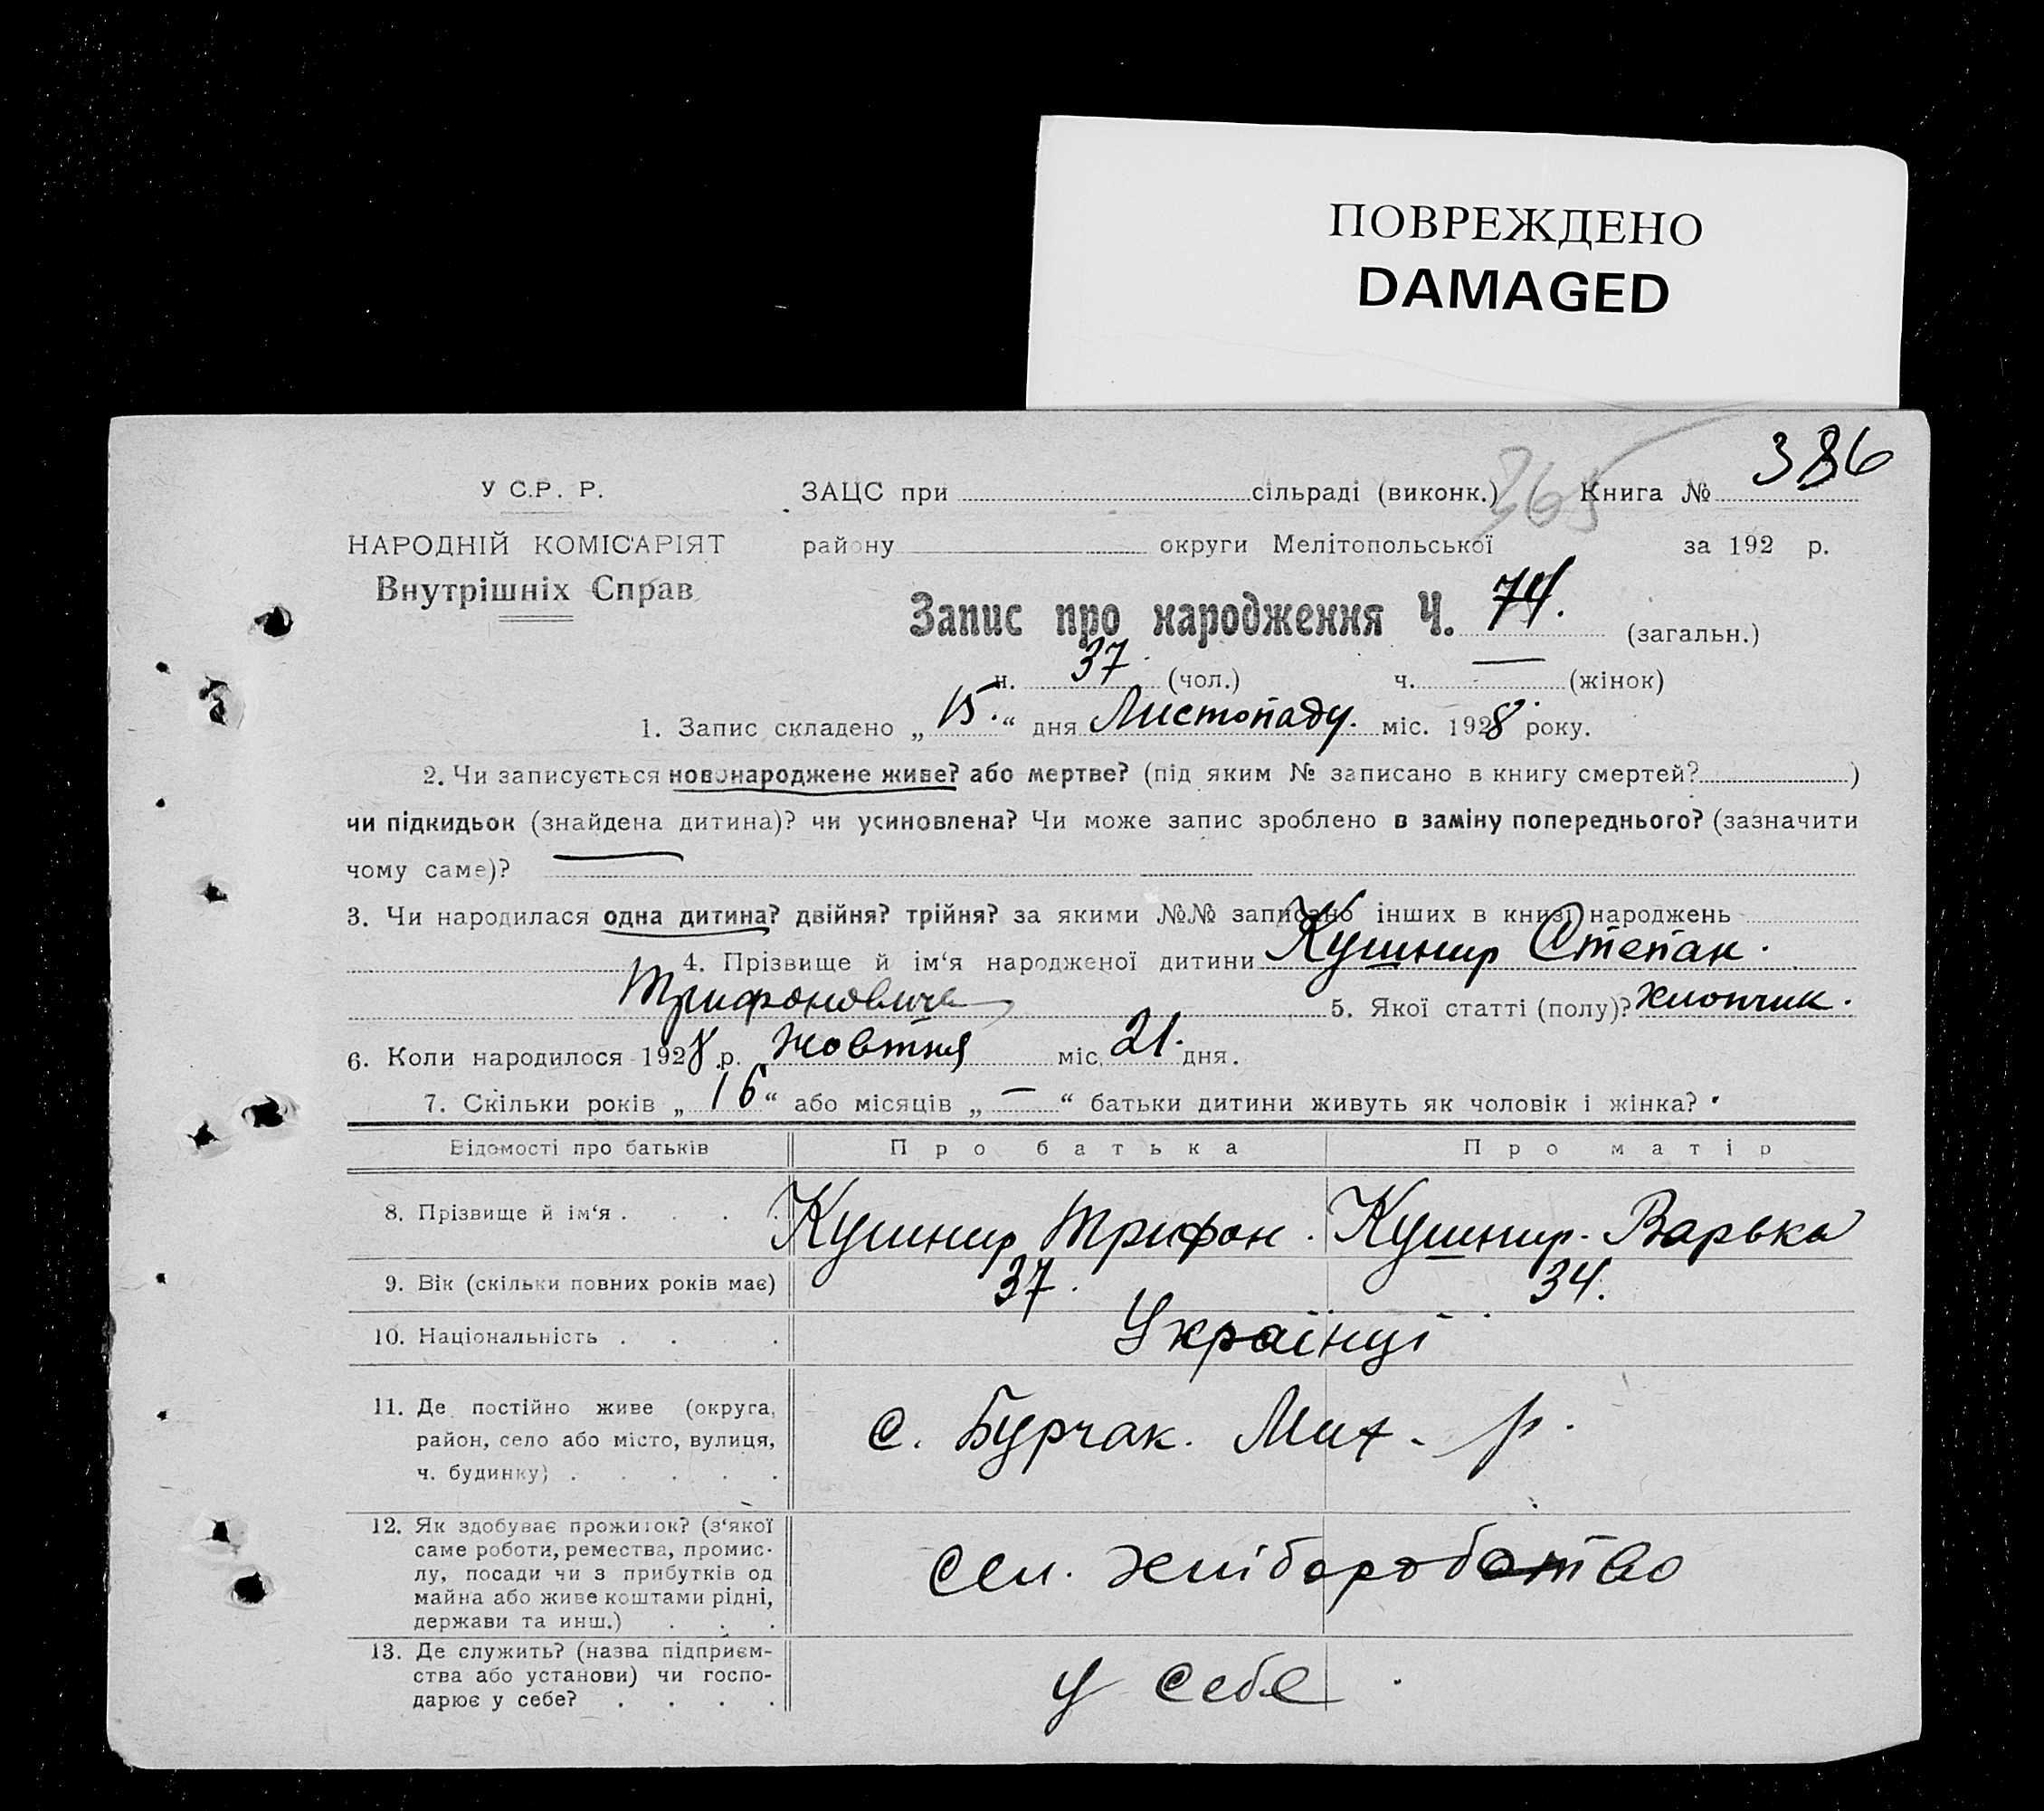 ПОВРЕЖДЕНО
DAMAGED
386
365
У С.Р. Р.
ЗАЦС при сільраді (виконк.) Книга №
НАРОДНІЙ КОМІСАРІЯТ
району округи Мелітопольської за 192 р.
Внутрішніх Справ
Запис про народження Ч. 74. (загальн.)
ч. 37 (чол.) ч. — (жінок)
1. Запис складено „ 15. “ дня Листопаду. міс. 1928 року.
2. Чи записується новонароджене живе? або мертве? (під яким № записано в книгу смертей? )
чи підкидьок (знайдена дитина)? чи усиновлена? Чи може запис зроблено в заміну попереднього? (зазначити
чому саме)? —
3. Чи народилася одна дитина? двійня? трійня? за якими №№ записано інших в книзі народжень
4. Прізвище й ім‘я народженої дитини Кушнир Степан.
Трифонович 5. Якої статті (полу)? хлопчик.
6. Коли народилося 1928 р. жовтня міс. 21. дня.
7. Скільки років „ 16 “ або місяців „ — “ батьки дитини живуть як чоловік і жінка?
Відомості про батьків Про батька Про матір
8. Прізвище й ім‘я . . . . Кушнир Трифон. Кушнир. Варька
9. Вік (скільки повних років має) 37. 34.
10. Національність . . . Українці
11. Де постійно живе (округа,
район, село або місто, вулиця,
ч. будинку) . . . . .
с. Бурчак. Мих. р.
12. Як здобуває прожиток? (з‘якої
саме роботи, ремества, промис-
лу, посади чи з прибутків од
майна або живе коштами рідні,
держави та инш.) . . .
сел. хліборобство
13. Де служить? (назва підприєм-
ства або установи) чи госпо-
дарює у себе? . . . .
у себе.